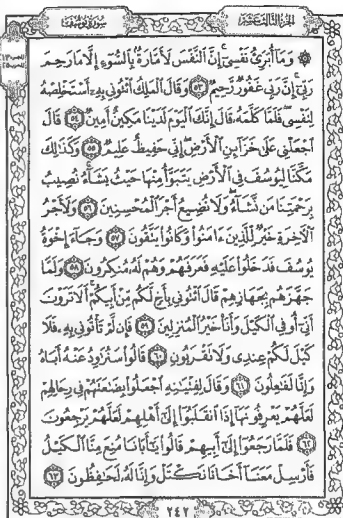 الجزء الثالث عشر
سورة يوسف
۞ وَمَا أُبَرِّئُ نَفْسِي إِنَّ النَّفْسَ لَأَمَّارَةٌ بِالسُّوءِ إِلَّا مَا رَحِمَ
رَبِّي إِنَّ رَبِّي غَفُورٌ رَّحِيمٌ ٥٣ وَقَالَ الْمَلِكُ ائْتُونِي بِهِ أَسْتَخْلِصْهُ
لِنَفْسِي فَلَمَّا كَلَّمَهُ قَالَ إِنَّكَ الْيَوْمَ لَدَيْنَا مَكِينٌ أَمِينٌ ٥٤ قَالَ
اجْعَلْنِي عَلَى خَزَائِنِ الْأَرْضِ إِنِّي حَفِيظٌ عَلِيمٌ ٥٥ وَكَذَلِكَ
مَكَّنَّا لِيُوسُفَ فِي الْأَرْضِ يَتَبَوَّأُ مِنْهَا حَيْثُ يَشَاءُ نُصِيبُ
بِرَحْمَتِنَا مَن نَّشَاءُ وَلَا نُضِيعُ أَجْرَ الْمُحْسِنِينَ ٥٦ وَلَأَجْرُ
الْآخِرَةِ خَيْرٌ لِّلَّذِينَ ءَامَنُوا وَكَانُوا يَتَّقُونَ ٥٧ وَجَاءَ إِخْوَةُ
يُوسُفَ فَدَخَلُوا عَلَيْهِ فَعَرَفَهُمْ وَهُمْ لَهُ مُنكِرُونَ ٥٨ وَلَمَّا
جَهَّزَهُم بِجَهَازِهِمْ قَالَ ائْتُونِي بِأَخٍ لَّكُم مِّنْ أَبِيكُمْ أَلَا تَرَوْنَ
أَنِّي أُوفِي الْكَيْلَ وَأَنَا خَيْرُ الْمُنزِلِينَ ٥٩ فَإِن لَّمْ تَأْتُونِي بِهِ فَلَا
كَيْلَ لَكُمْ عِندِي وَلَا تَقْرَبُونِ ٦٠ قَالُوا سَنُرَاوِدُ عَنْهُ أَبَاهُ
وَإِنَّا لَفَاعِلُونَ ٦١ وَقَالَ لِفِتْيَانِهِ اجْعَلُوا بِضَاعَتَهُمْ فِي رِحَالِهِمْ
لَعَلَّهُمْ يَعْرِفُونَهَا إِذَا انقَلَبُوا إِلَى أَهْلِهِمْ لَعَلَّهُمْ يَرْجِعُونَ
٦٢ فَلَمَّا رَجَعُوا إِلَى أَبِيهِمْ قَالُوا يَا أَبَانَا مُنِعَ مِنَّا الْكَيْلُ
فَأَرْسِلْ مَعَنَا أَخَانَا نَكْتَلْ وَإِنَّا لَهُ لَحَافِظُونَ ٦٣
٢٤٢